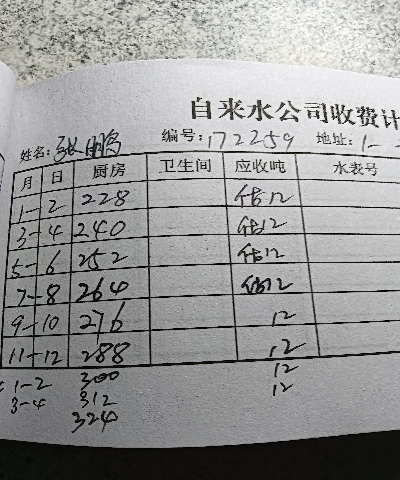 自来水公司收费计
姓名: 张鹏 编号: 172259 地址: 1-
月 日 厨房 卫生间 应收吨 水表号
1-2 228 估12
3-4 240 估12
5-6 252 估12
7-8 264 估12
9-10 276 12
11-12 288 12
1-2 300 12
3-4 312 12
324